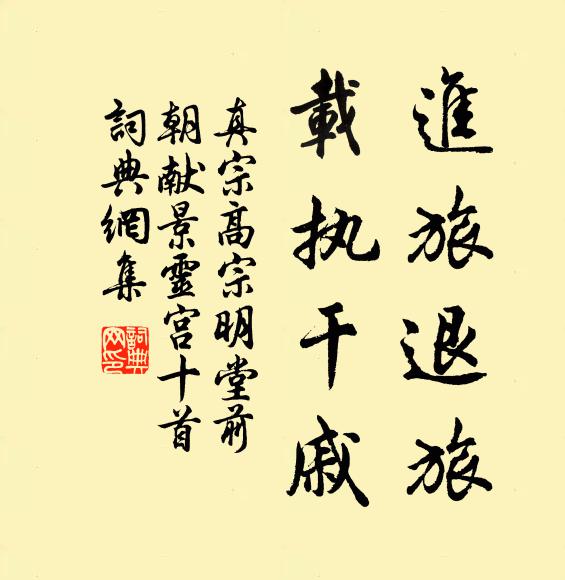 進旅退旅
載执干戚
真宗高宗明堂前
朝献景靈宫十首
詞典網集
詞典網印